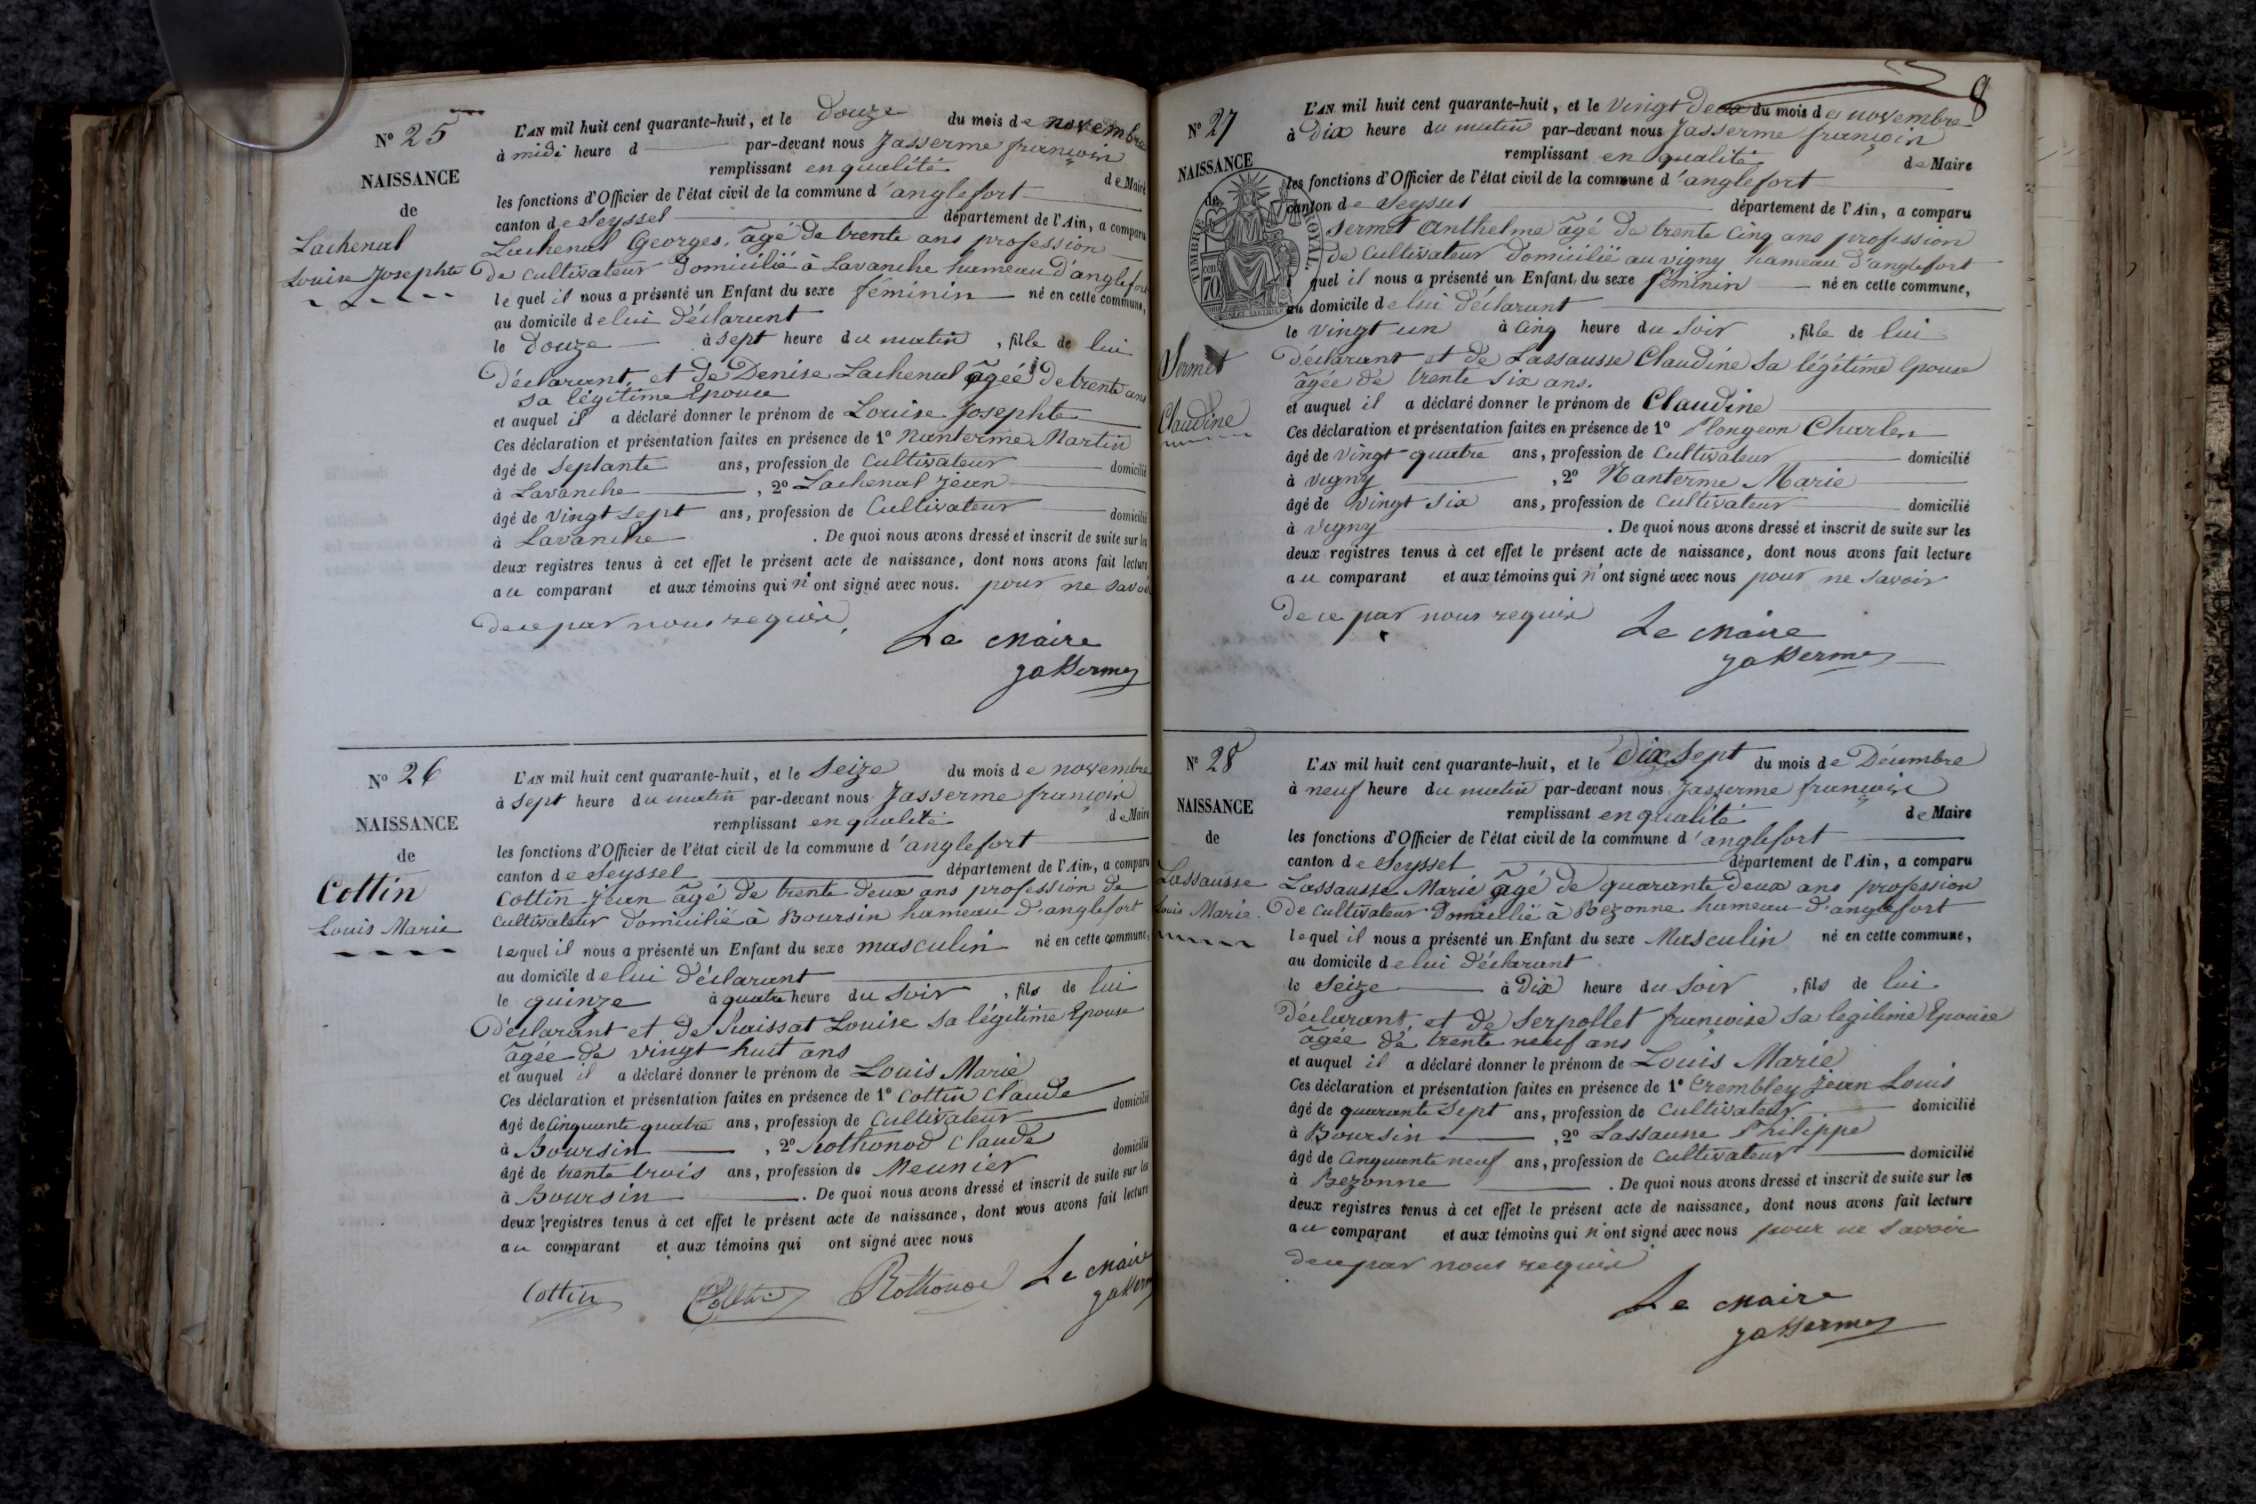 N° 25
NAISSANCE
de
Lachenal
Louise Josephte
L'AN mil huit cent quarante-huit, et le Douze du mois de novembre
à midi heure d par-devant nous Jasserme françois
remplissant en qualité de Maire
les fonctions d'Officier de l'état civil de la commune d'anglefort
canton de Seyssel département de l'Ain, a comparu
Lachenal Georges, âgé de trente ans profession
de cultivateur Domicilié à Lavanche hameau d'anglefort
lequel il nous a présenté un Enfant du sexe féminin né en cette commune,
au domicile de lui déclarant
le Douze à sept heure du matin, fille de lui
Déclarant, et de Denise Lachenal âgée de trente ans
sa légitime Epouse
et auquel il a déclaré donner le prénom de Louise Josephte
Ces déclaration et présentation faites en présence de 1° Nanterme Martin
âgé de septante ans, profession de cultivateur domicilié
à Lavanche, 2° Lachenal Jean
âgé de vingt sept ans, profession de Cultivateur domicilié
à Lavanche. De quoi nous avons dressé et inscrit de suite sur les
deux registres tenus à cet effet le présent acte de naissance, dont nous avons fait lecture
au comparant et aux témoins qui n'ont signé avec nous. pour ne savoir
de ce par nous requis,
Le Maire
Jasserme
N° 26
NAISSANCE
de
Cottin
Louis Marie
L'AN mil huit cent quarante-huit, et le Seize du mois de novembre
à sept heure du matin par-devant nous Jasserme françois
remplissant en qualité de Maire
les fonctions d'Officier de l'état civil de la commune d'anglefort
canton de Seyssel département de l'Ain, a comparu
Cottin Jean âgé de trente deux ans profession de
cultivateur domicilié à Boursin hameau d'anglefort
lequel il nous a présenté un Enfant du sexe masculin né en cette commune,
au domicile de lui déclarant
le quinze à quatre heure du Soir, fils de lui
Déclarant et de Louise sa légitime Epouse
âgée de vingt huit ans
et auquel il a déclaré donner le prénom de Louis Marie
Ces déclaration et présentation faites en présence de 1° Cottin Claude
âgé de Cinquante quatre ans, profession de Cultivateur domicilié
à Boursin, 2° Rothonod Claude
âgé de trente trois ans, profession de Meunier domicilié
à Boursin. De quoi nous avons dressé et inscrit de suite sur les
deux registres tenus à cet effet le présent acte de naissance, dont nous avons fait lecture
au comparant et aux témoins qui ont signé avec nous
Cottin Cottin Rothonod Le Maire
Jasserme
8
N° 27
NAISSANCE
de
TIMBRE ROYAL
70
Sermet
Claudine
L'AN mil huit cent quarante-huit, et le vingt deux du mois de novembre
à Dix heure du matin par-devant nous Jasserme françois
remplissant en qualité de Maire
les fonctions d'Officier de l'état civil de la commune d'anglefort
canton de Seyssel département de l'Ain, a comparu
Sermet Anthelme âgé de trente Cinq ans profession
de Cultivateur Domicilié au vigny hameau d'anglefort
quel il nous a présenté un Enfant du sexe féminin né en cette commune,
au domicile de lui déclarant
le vingt un à Cinq heure du Soir, fille de lui
Déclarant et de Lassausse Claudine sa légitime Epouse
âgée de trente six ans.
et auquel il a déclaré donner le prénom de Claudine
Ces déclaration et présentation faites en présence de 1° Plongeon Charles
âgé de vingt quatre ans, profession de Cultivateur domicilié
à vigny, 2° Nanterme Marie
âgé de vingt six ans, profession de Cultivateur domicilié
à vigny. De quoi nous avons dressé et inscrit de suite sur les
deux registres tenus à cet effet le présent acte de naissance, dont nous avons fait lecture
au comparant et aux témoins qui n'ont signé avec nous pour ne savoir
de ce par nous requis
Le Maire
Jasserme
N° 28
NAISSANCE
de
Lassausse
Louis Marie
L'AN mil huit cent quarante-huit, et le Dix Sept du mois de Décembre
à neuf heure du matin par-devant nous Jasserme françois
remplissant en qualité de Maire
les fonctions d'Officier de l'état civil de la commune d'anglefort
canton de Seyssel département de l'Ain, a comparu
Lassausse Marie âgé de quarante Deux ans profession
de cultivateur Domicilié à Bezonne hameau d'anglefort
lequel il nous a présenté un Enfant du sexe Masculin né en cette commune,
au domicile de lui déclarant
le Seize à Dix heure du Soir, fils de lui
Déclarant, et de Serpollet françoise sa légitime Epouse
âgée de trente neuf ans
et auquel il a déclaré donner le prénom de Louis Marie
Ces déclaration et présentation faites en présence de 1° Trembley Jean Louis
âgé de quarante Sept ans, profession de Cultivateur domicilié
à Boursin, 2° Lassausse Philippe
âgé de Cinquante neuf ans, profession de Cultivateur domicilié
à Bezonne. De quoi nous avons dressé et inscrit de suite sur les
deux registres tenus à cet effet le présent acte de naissance, dont nous avons fait lecture
au comparant et aux témoins qui n'ont signé avec nous pour ne savoir
de ce par nous requis
Le Maire
Jasserme